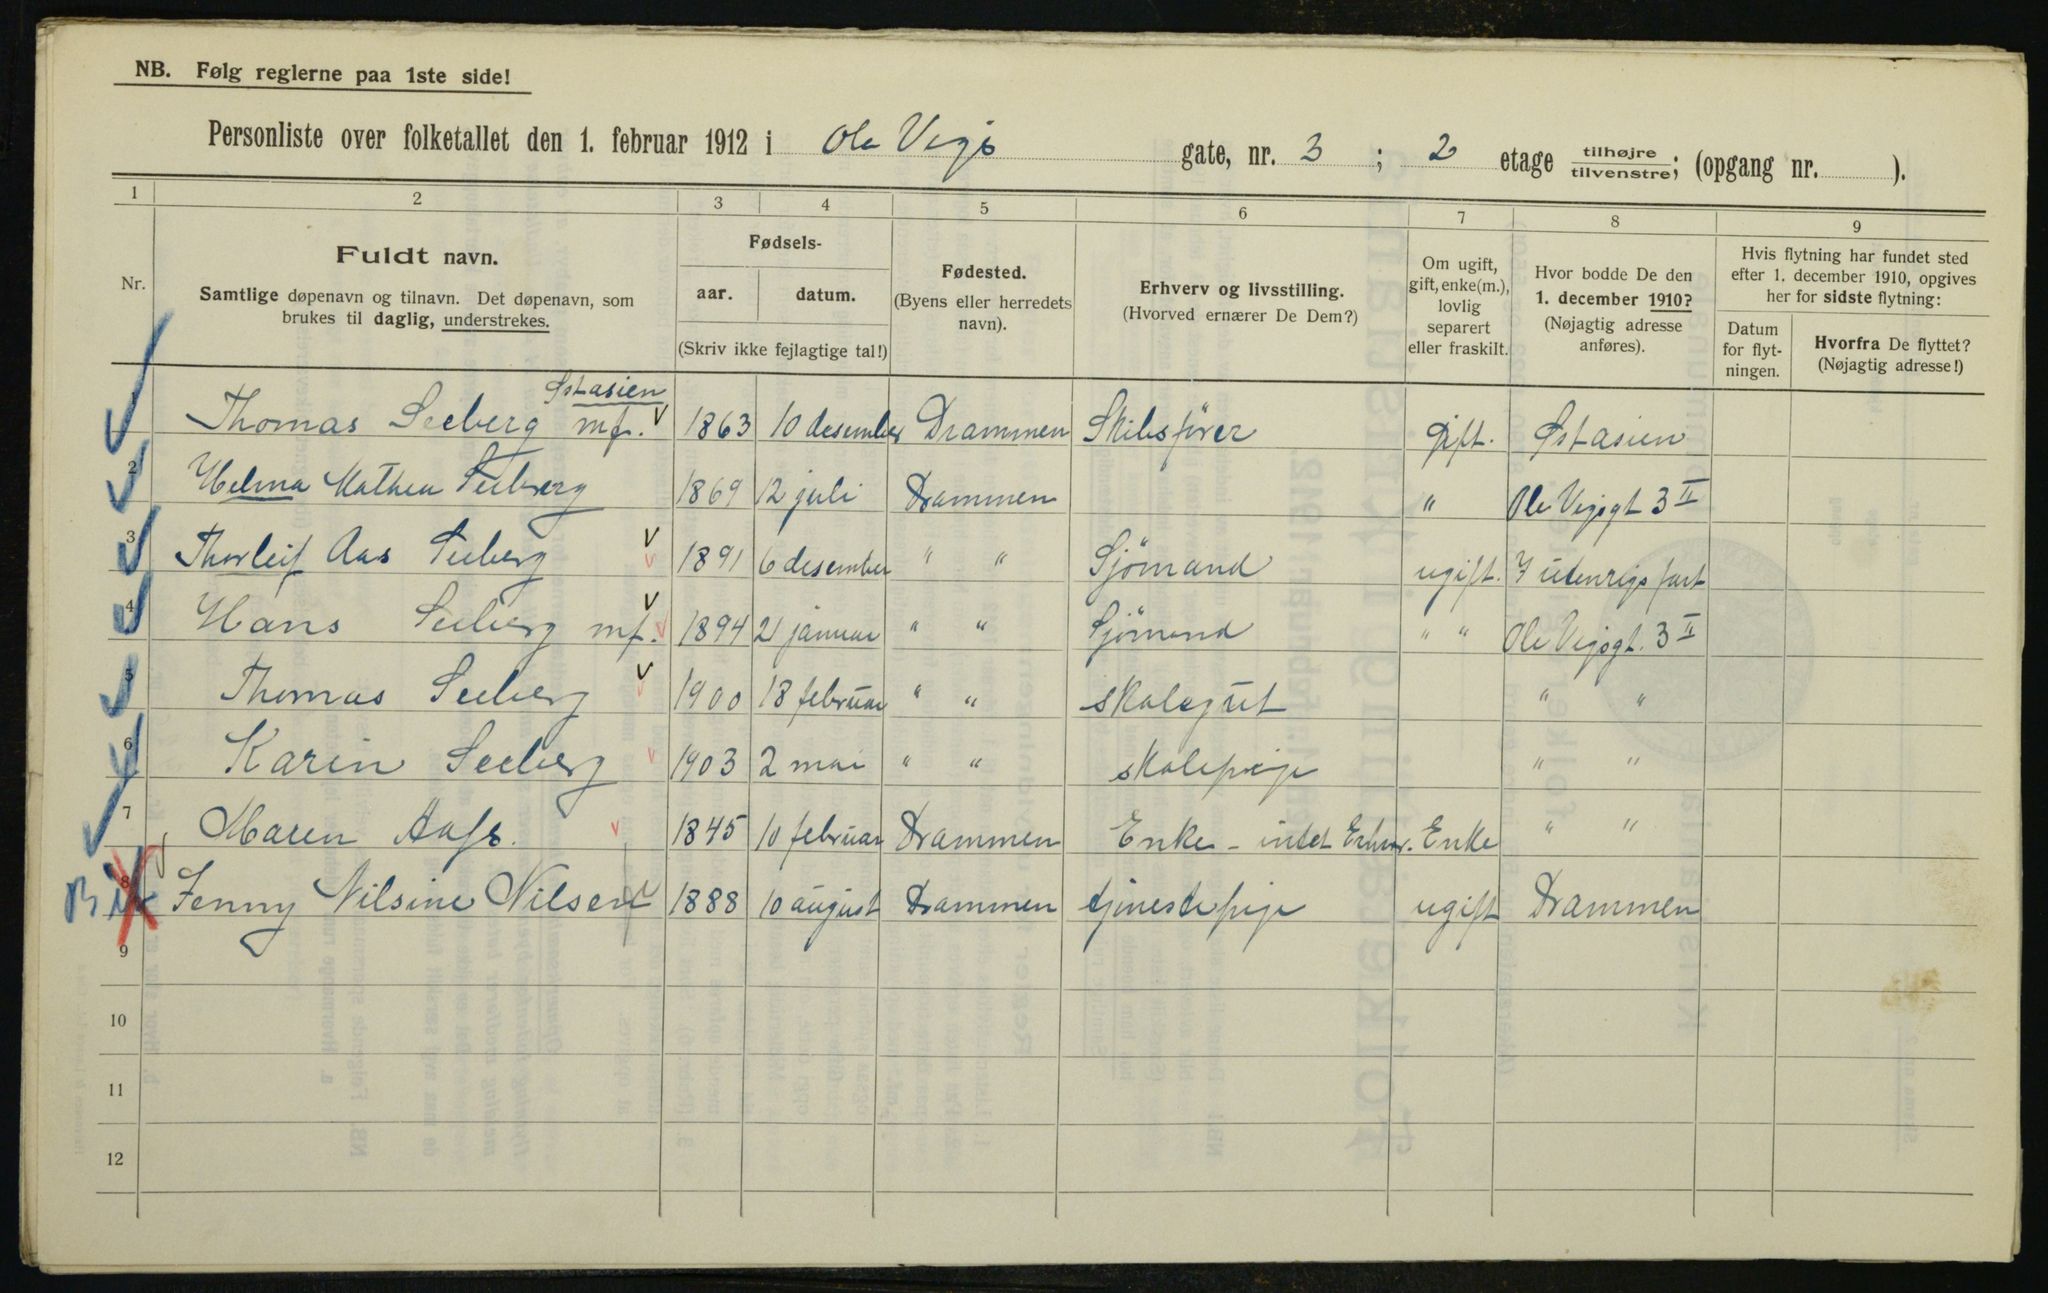 NB. Følg reglerne paa 1ste side!
Personliste over folketallet den 1. februar 1912 i Ole Vigs gate, nr. 3 ; 2 etage tilhøjre/tilvenstre; (opgang nr. ).
1 2 3 4 5 6 7 8 9
Nr.
Fuldt navn.
Samtlige døpenavn og tilnavn. Det døpenavn, som
brukes til daglig, understrekes.
Fødsels-
aar. datum.
(Skriv ikke fejlagtige tal!)
Fødested.
(Byens eller herredets
navn).
Erhverv og livsstilling.
(Hvorved ernærer De Dem?)
Om ugift,
gift, enke(m.),
lovlig
separert
eller fraskilt.
Hvor bodde De den
1. december 1910?
(Nøjagtig adresse
anføres).
Hvis flytning har fundet sted
efter 1. december 1910, opgives
her for sidste flytning:
Datum
for flyt-
ningen.
Hvorfra De flyttet?
(Nøjagtig adresse!)
Østasien
Thomas Seeberg mf. 1863 10 desember Drammen Skibsfører Gift. Østasien
2 Helma Mathea Seeberg 1869 12 juli Drammen " Ole Vigsgt 3 II
3 Thorleif Aas Seeberg 1891 6 desember " " Sjömand ugift. I udenrigsfart
4 Hans Seeberg mf. 1894 21 januar " " Sjömand " " Ole Vigsgt. 3 II
5 Thomas Seeberg 1900 18 februar " " skolegut " "
6 Karin Seeberg 1903 2 mai " " skolepige " "
7 Maren Aass. 1845 10 februar Drammen Enke - intet Erhver. Enke " "
8 Jenny Nilsine Nilsen 1888 10 august Drammen tjenestepige ugift Drammen
9
10
11
12